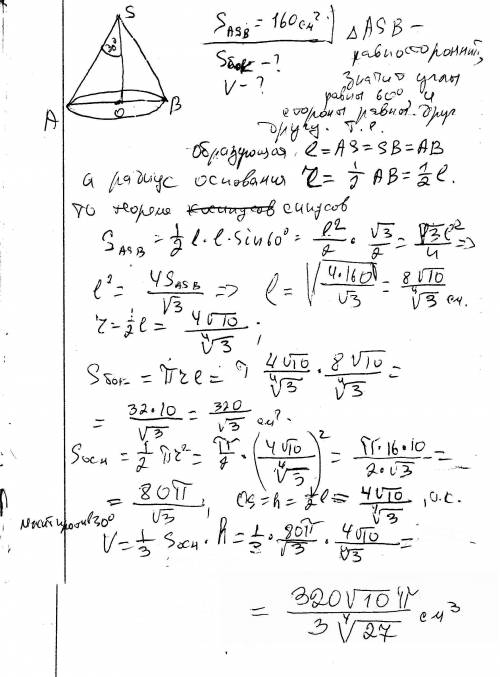 S
30°
A
O
B
S_ASB = 160 см²
Sбок - ?
V - ?
△ ASB -
равносторонний,
значит углы
равны 60° и
стороны равны друг
другу. Т.е.
Образующая l = AS = SB = AB
а радиус основания r = 1/2 AB = 1/2 l.
по теореме синусов
S_ASB = 1/2 l · l · sin 60° = l²/2 · √3/2 = √3 l²/4 =>
l² = 4S_ASB/√3 => l = √(4·160/√3) = 8√10/∜3 см.
r = 1/2 l = 4√10/∜3 ;
Sбок = πrl = π 4√10/∜3 · 8√10/∜3 =
= 32·10/√3 = 320/√3 см².
Sосн = 1/2 πr² = π/2 · (4√10/∜3)² = π·16·10/2·√3 =
= 80π/√3 ; OS = h = 1/2 l = 4√10/∜3 , о.с.
лежит против 30°
V = 1/3 Sосн · h = 1/3 · 80π/√3 · 4√10/∜3 =
= 320√10 π/3∜27 см³